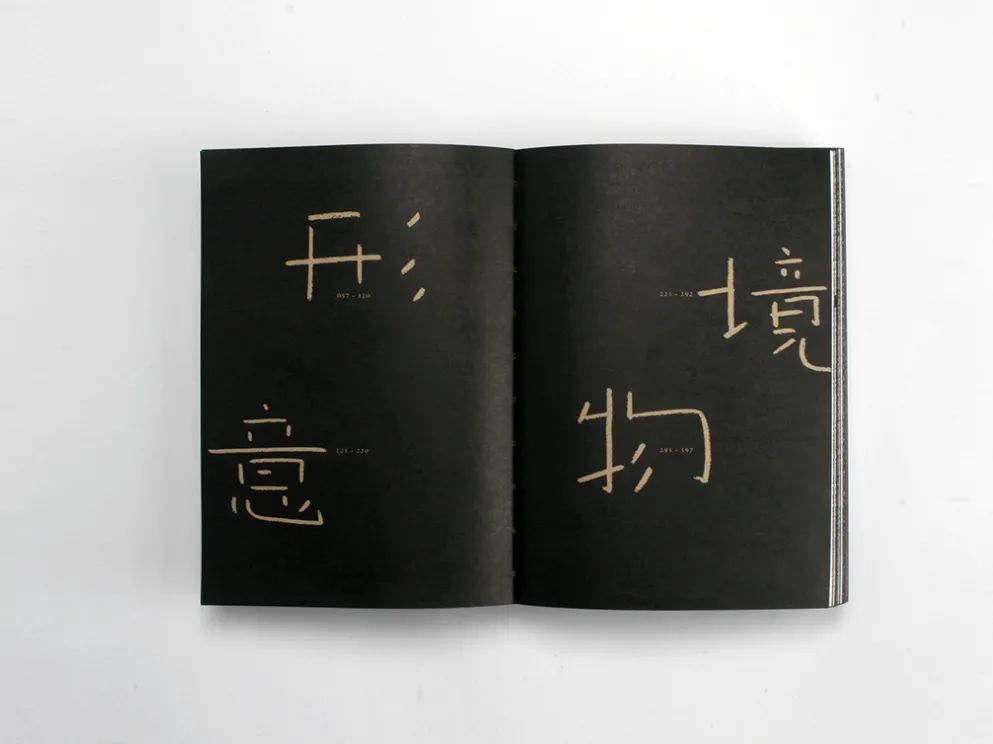 形
057 – 120
意
121 – 220
境
221 – 292
物
293 – 397